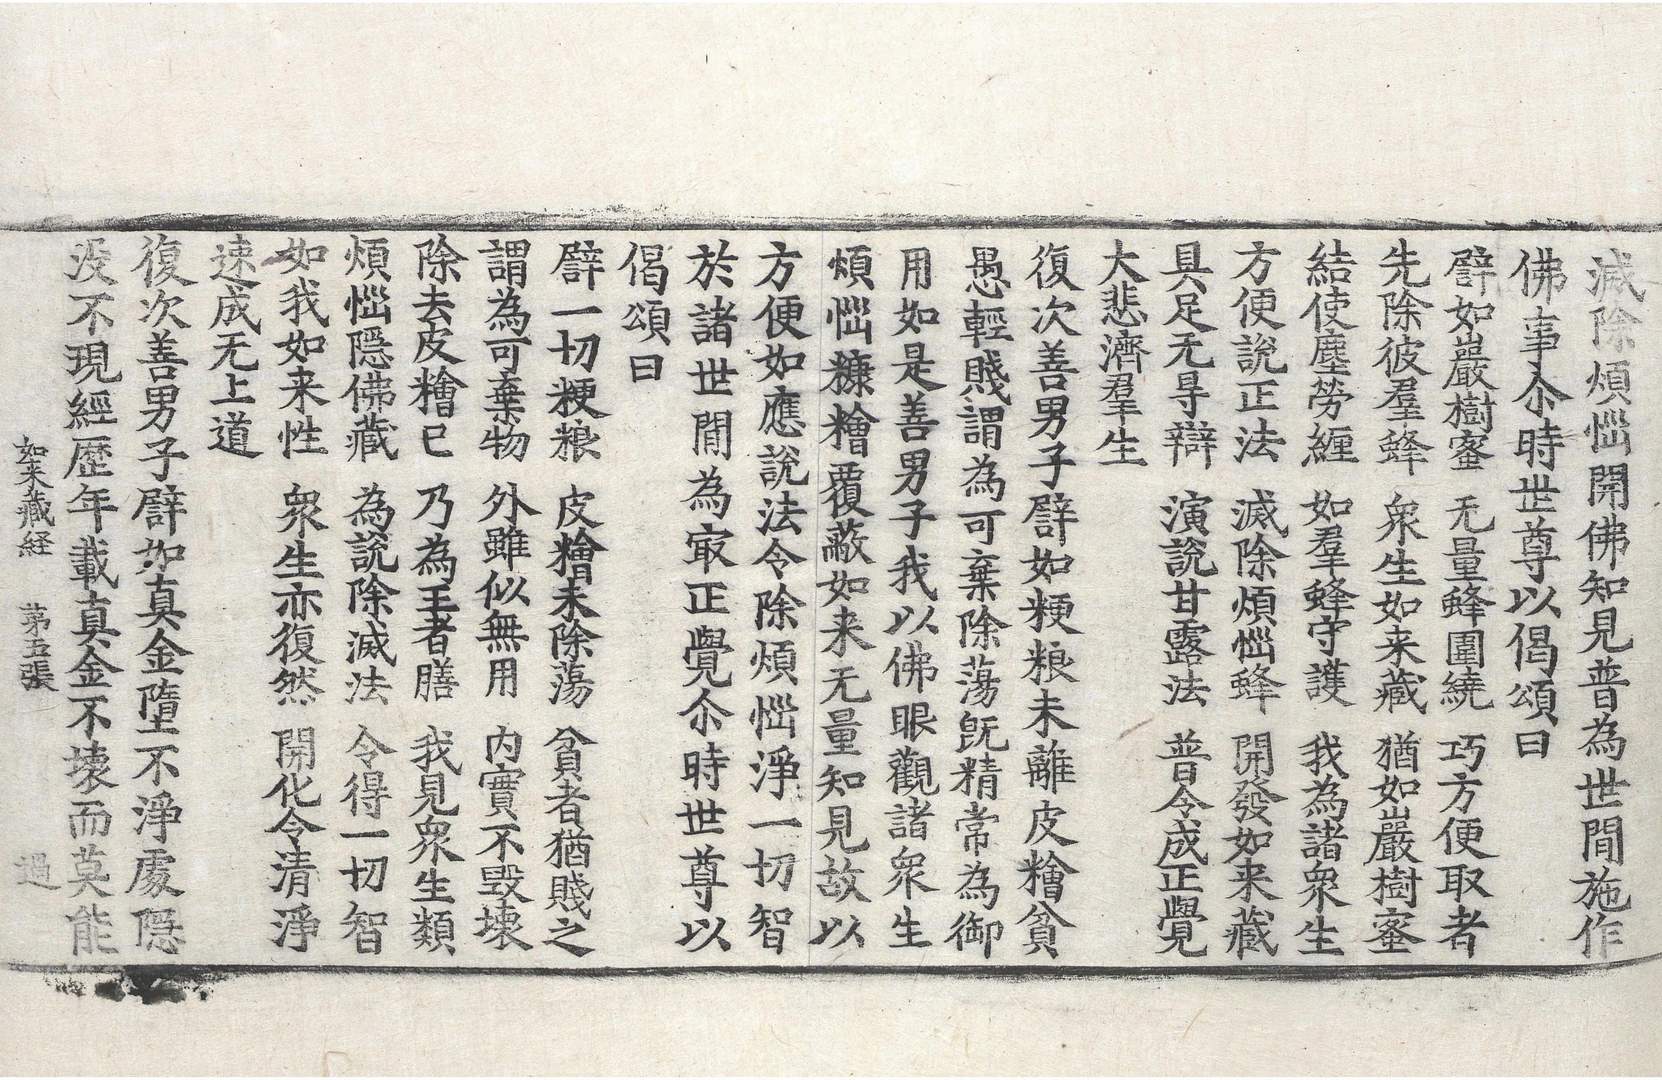 滅除煩惱開佛知見普為世間施作
佛事尒時世尊以偈頌曰
譬如巖樹蜜　无量蜂圍繞　巧方便取者
先除彼羣蜂　衆生如来藏　猶如巖樹蜜
結使塵勞纏　如羣蜂守護　我為諸衆生
方便説正法　滅除煩惱蜂　開發如来藏
具足无㝵辯　演説甘露法　普令成正覺
大悲濟羣生
復次善男子譬如粳粮未離皮糩貧
愚輕賤謂為可棄除蕩旣精常為御
用如是善男子我以佛眼觀諸衆生
煩惱糠糩覆蔽如来无量知見故以
方便如應説法令除煩惱淨一切智
於諸世間為㝡正覺尒時世尊以
偈頌曰
譬一切粳粮　皮糩未除蕩　貧者猶賤之
謂為可棄物　外雖似無用　内實不毀壊
除去皮糩已　乃為王者膳　我見衆生類
煩惱隱佛藏　為説除滅法　令得一切智
如我如来性　衆生亦復然　開化令清淨
速成无上道
復次善男子譬如真金墮不淨處隱
没不現經歷年載真金不壊而莫能
如来藏経　苐五張　過